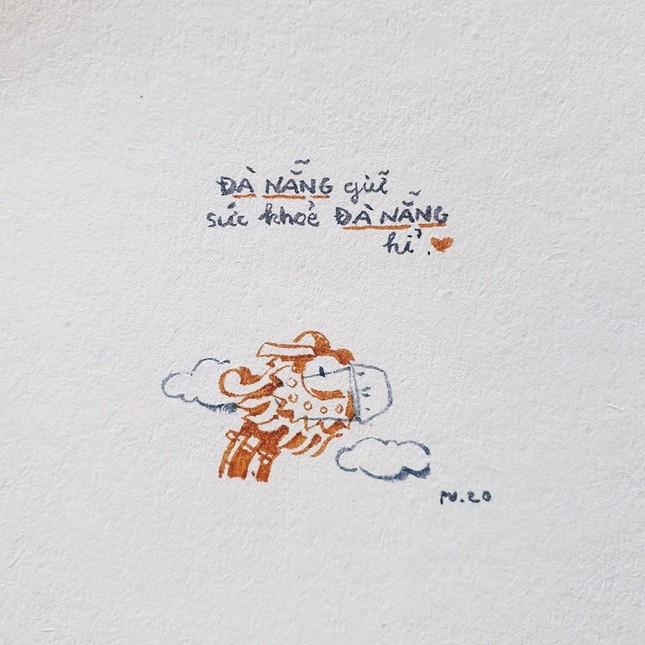 ĐÀ NẴNG giữ
sức khoẻ ĐÀ NẴNG
hỉ.